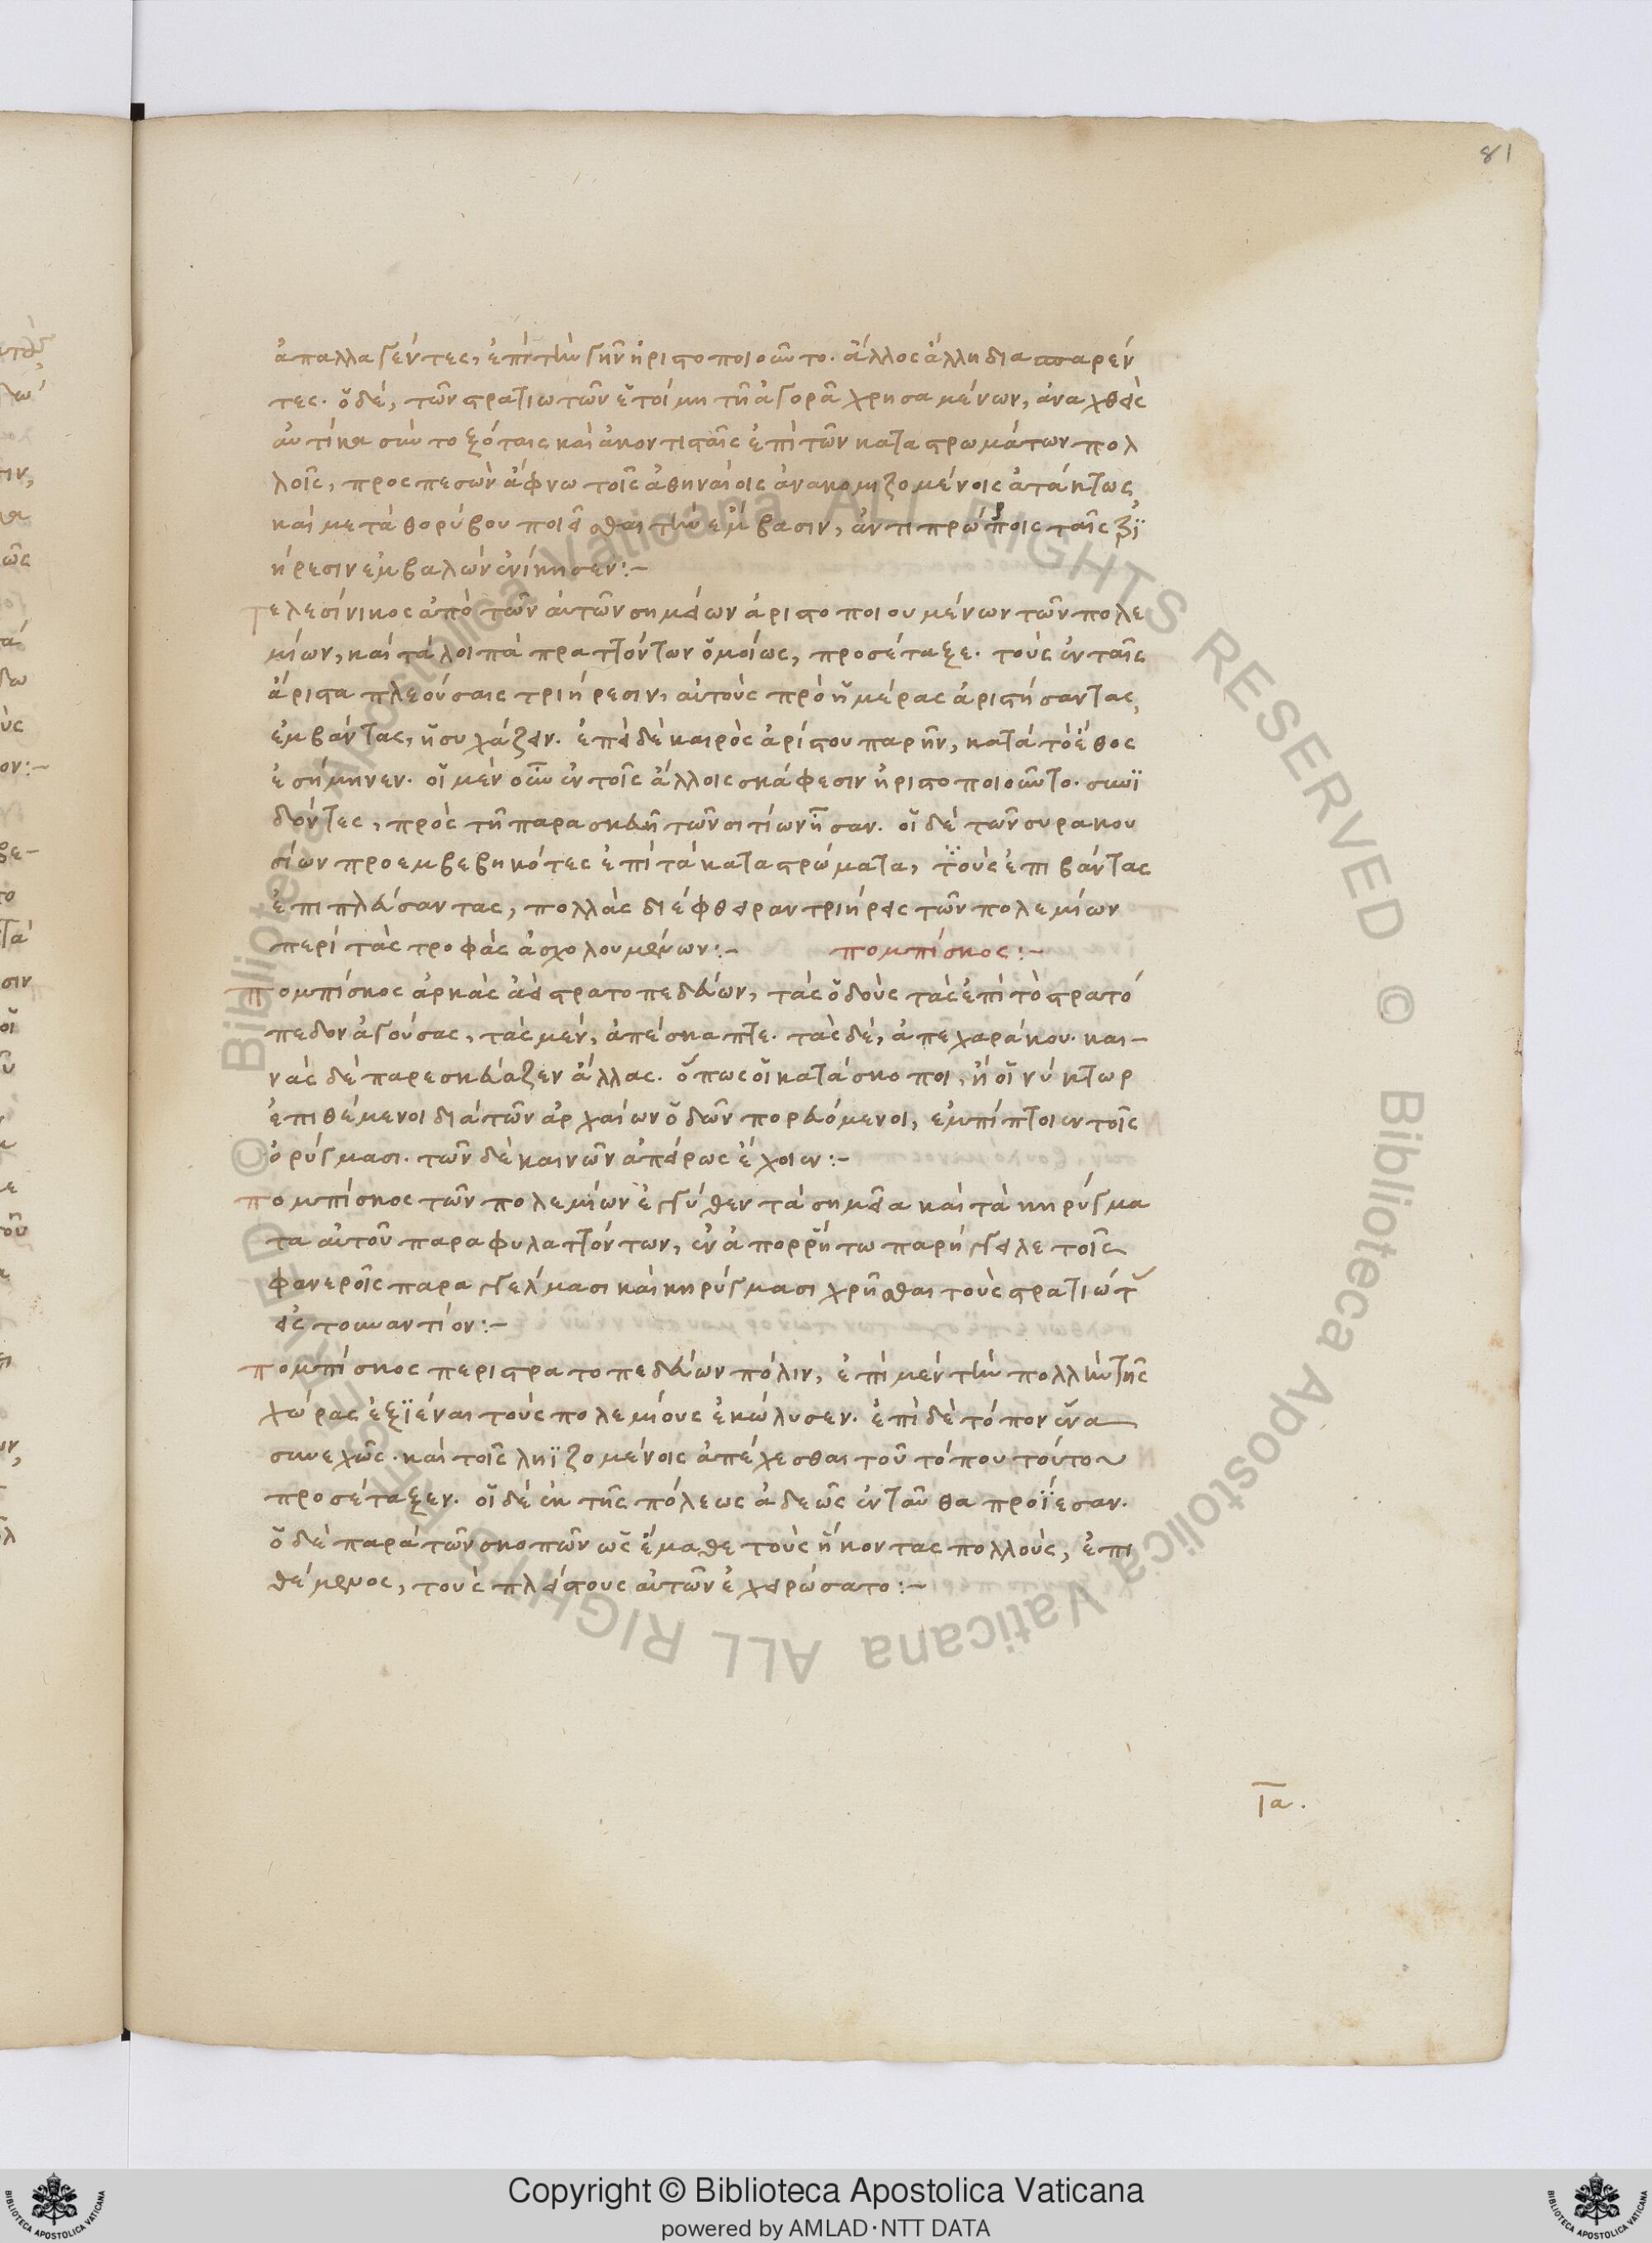 81
ἀπαλλαγέντες, ἐπὶ τὴν γῆν ἠριστοποιοῦντο. ἄλλος ἄλλη διασπαρέν
τες. ὁ δέ, τῶν στρατιωτῶν ἑτοίμη τῆ ἀγορᾶ χρησαμένων, ἀναχθεὶς
αὐτίκα σὺν τοξόταις καὶ ἀκοντισταῖς ἐπὶ τῶν καταστρωμάτων πολ
λοῖς, προσπεσὼν ἄφνω τοῖς ἀθηναίοις ἀνακομιζομένοις ἀτάκτως,
καὶ μετὰ θορύβου ποιεῖσθαι τὴν ἔμβασιν, ἀντιπρώροις ταῖς τρι
ήρεσιν ἐμβαλὼν ἐνίκησεν:-
τελεσίνικος ἀπὸ τῶν αὐτῶν σημείων ἀριστοποιουμένων τῶν πολε
μίων, καὶ τὰ λοιπὰ πραττόντων ὁμοίως, προσέταξε. τοὺς ἐν ταῖς
ἄριστα πλεούσαις τριήρεσιν, αὐτοὺς πρὸ ἡμέρας ἀριστήσαντας,
ἐμβάντας, ἡσυχάζειν. ἐπεὶ δὲ καιρὸς ἀρίστου παρῆν, κατὰ τὸ ἔθος
ἐσήμηνεν. οἱ μὲν οὖν ἐν τοῖς ἄλλοις σκάφεσιν ἠριστοποιοῦντο. συνϊ
δόντες, πρὸς τῆ παρασκευῆ τῶν σιτίων ἦσαν. οἱ δὲ τῶν συρακου
σίων προεμβεβηκότες ἐπὶ τὰ καταστρώματα, τοὺς ἐπιβάντας
ἐπιπλεύσαντας, πολλὰς διέφθειραν τριήρεις τῶν πολεμίων
περὶ τὰς τροφὰς ἀσχολουμένων:- πομπίσκος:-
πομπίσκος ἀρκὰς ἀεὶ στρατοπεδεύων, τὰς ὁδοὺς τὰς ἐπὶ τὸ στρατό
πεδον ἀγούσας, τὰς μέν, ἀπέσκαπτε. τὰς δέ, ἀπεχαράκου. και-
νὰς δὲ παρεσκεύαζεν ἄλλας. ὅπως οἱ κατάσκοποι, ἢ οἱ νύκτωρ
ἐπιθέμενοι διὰ τῶν ἀρχαίων ὁδῶν πορευόμενοι, ἐμπίπτοιεν τοῖς
ὀρύγμασι. τῶν δὲ καινῶν ἀπείρως ἔχοιεν:-
πομπίσκος τῶν πολεμίων ἐγγύθεν τὰ σημεῖα καὶ τὰ κηρύγμα
τα αὐτοῦ παραφυλαττόντων, ἐν ἀπορρήτω παρήγγειλε τοῖς
φανεροῖς παραγγέλμασι καὶ κηρύγμασι χρῆσθαι τοὺς στρατιώτ
εἰς τουναντίον:-
πομπίσκος περιστρατοπεδεύων πόλιν, ἐπὶ μὲν τὴν πολλὴν τῆς
χώρας ἐξϊέναι τοὺς πολεμίους ἐκώλυσεν. ἐπὶ δὲ τόπον ἕνα
συνεχῶς. καὶ τοῖς ληϊζομένοις ἀπέχεσθαι τοῦ τόπου τούτου
προσέταξεν. οἱ δὲ ἐκ τῆς πόλεως ἀδεῶς ἐνταῦθα προΐεσαν.
ὁ δὲ παρὰ τῶν σκοπῶν ὡς ἔμαθε τοὺς ἥκοντας πολλούς, ἐπι
θέμενος, τοὺς πλείστους αὐτῶν ἐχειρώσατο:-
ια.
Copyright © Biblioteca Apostolica Vaticana
powered by AMLAD·NTT DATA